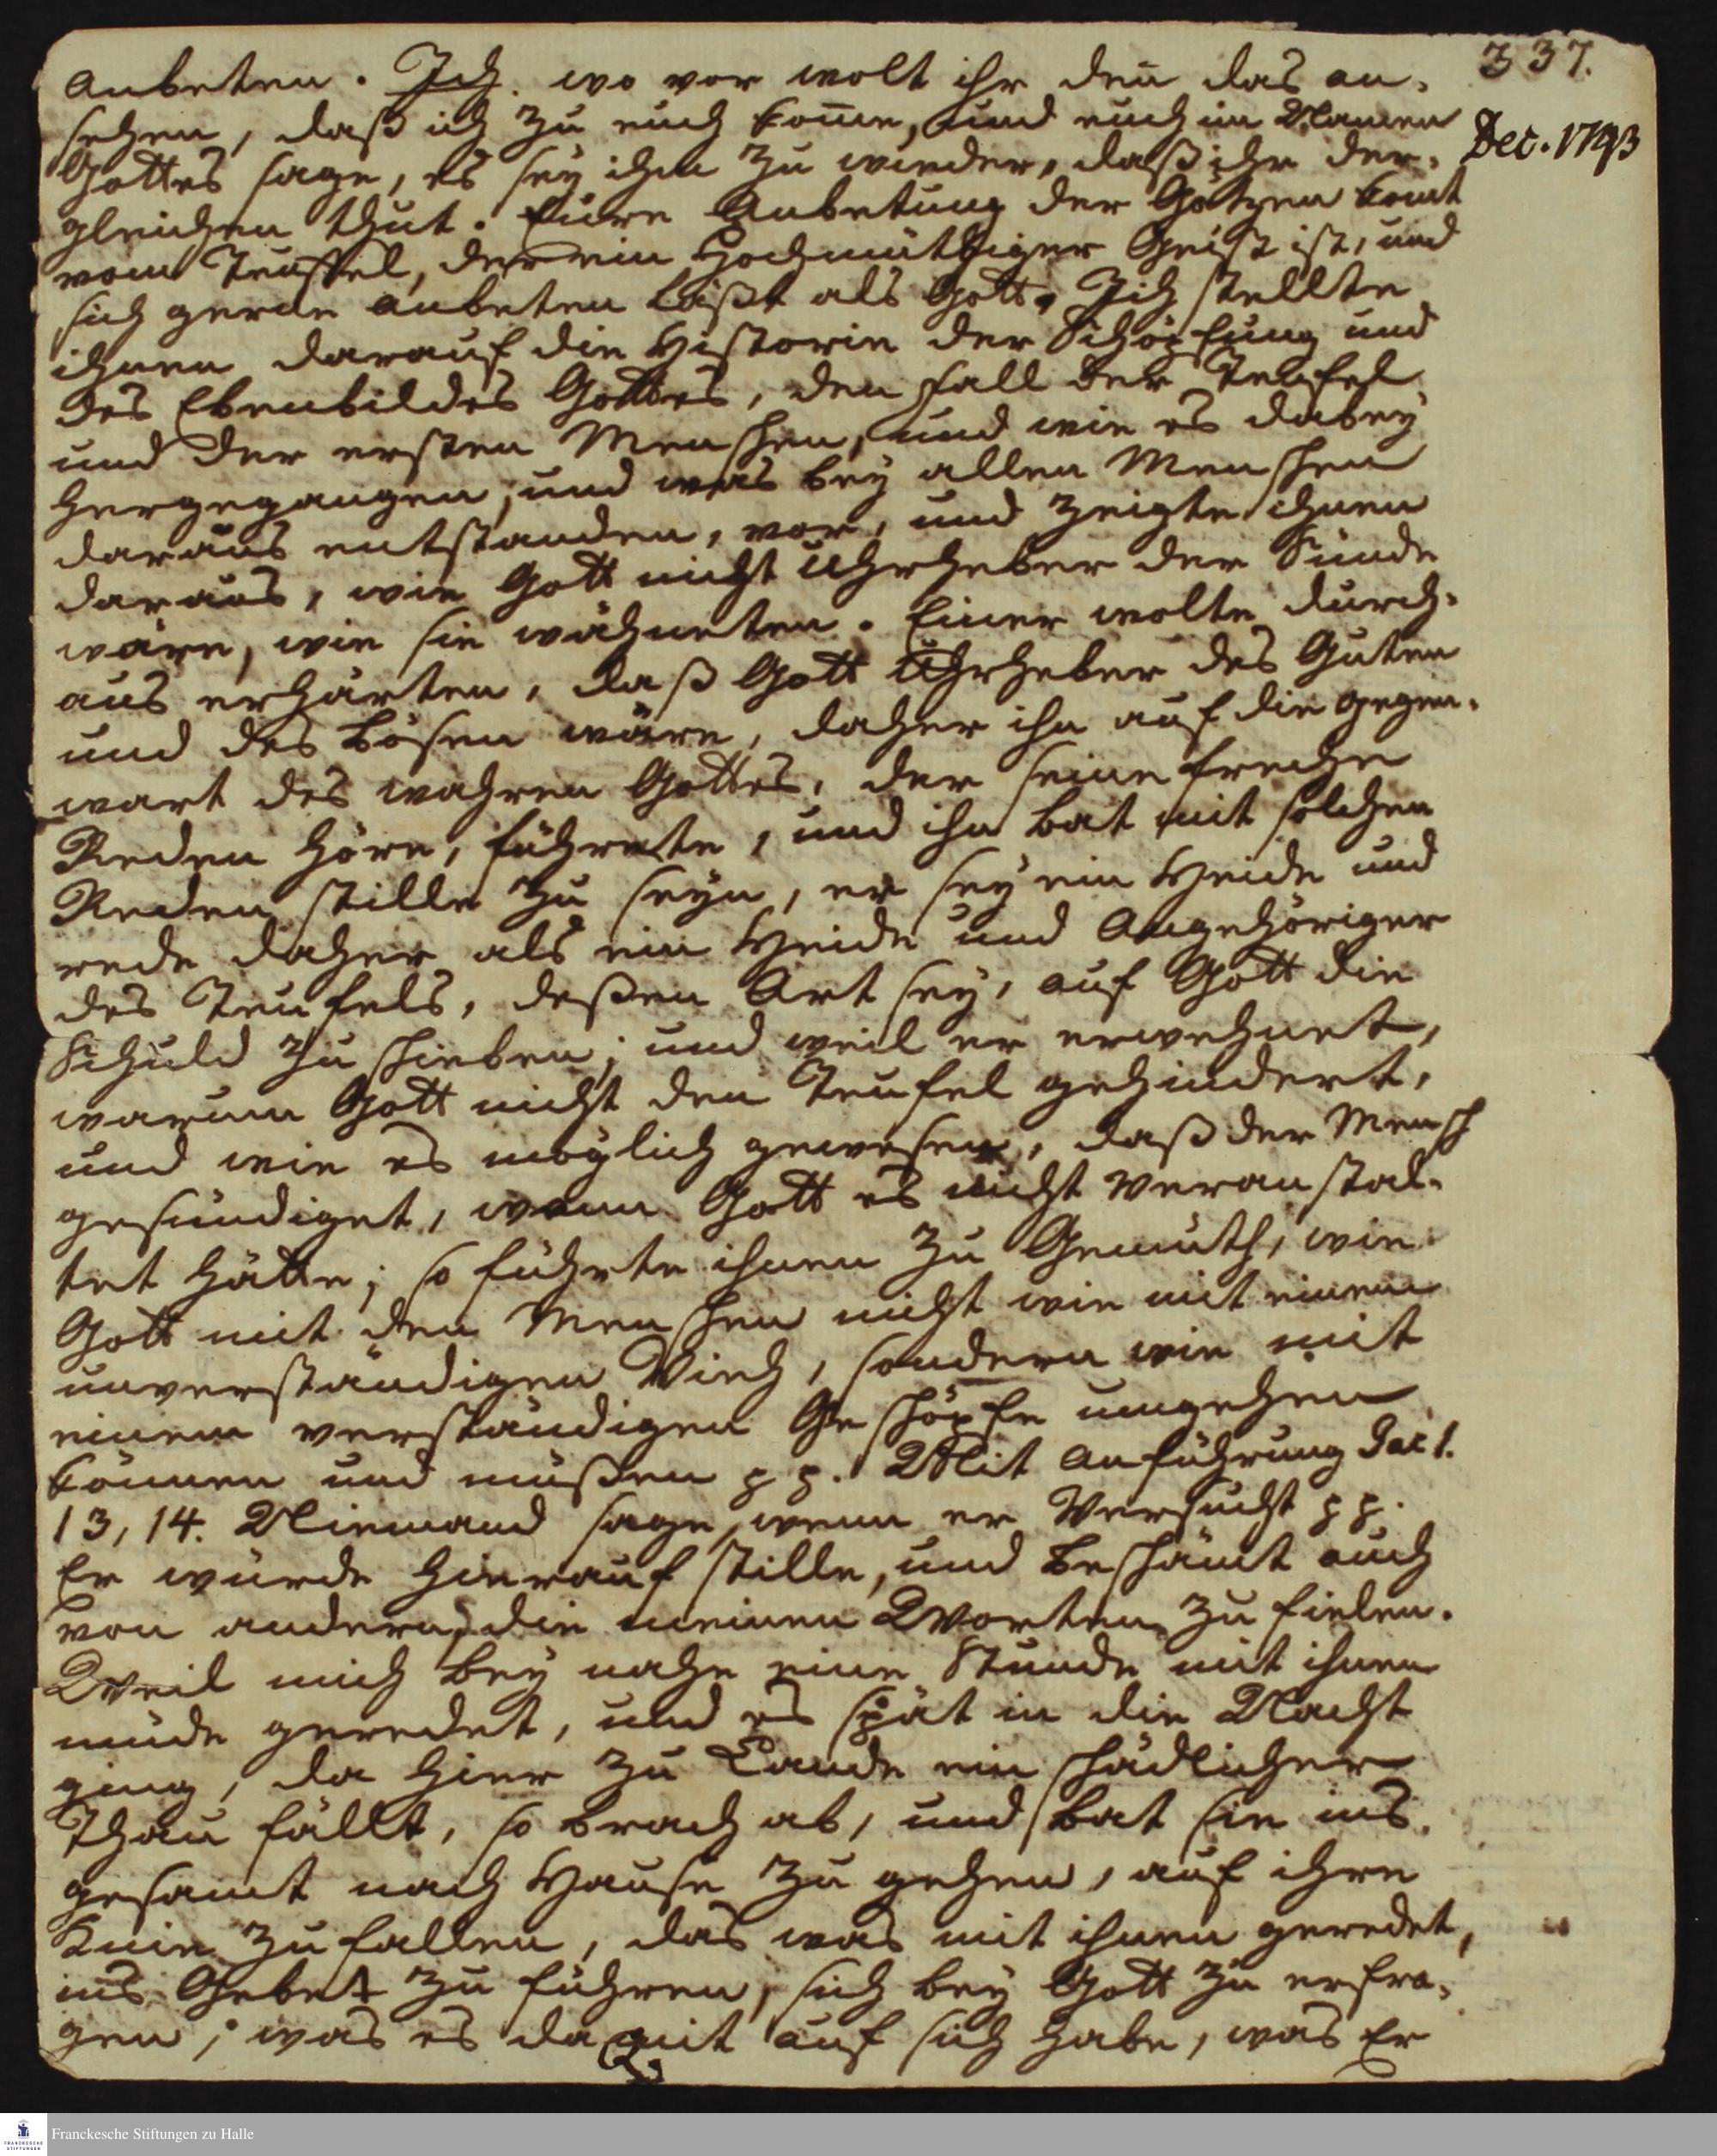 337.
Dec. 1793
anbeten. Ich. wo vor wolt ihr den̄ das an-
sehen, daß ich zu euch kom̄e, und euch im Namen
Gottes sage, es sey ihm zu wieder, daß ihr der-
gleichen thut. Eure Anbetung der Götzen kom̄t
vom Teuffel, der ein Hochmüthiger Geist ist, und
sich gerne anbeten läßt als Gott. Ich stellte
ihnen darauf die Historie der Schöpfung und
des Ebenbildes Gottes, den Fall der Teufel
und der ersten Menschen, und wie es dabey
hergegangen, und was bey allen Menschen
daraus entstanden, vor, und zeigte ihnen
daraus, wie Gott nicht Uhrheber der Sünde
wäre, wie sie wähneten. Einer wolte durch-
aus erhärten, daß Gott Uhrheber des Guten
und des Bösen wäre, daher ihn auf die Gegen-
wart des wahren Gottes, der seine freche
Reden höre, führete, und ihn bat mit solchen
Reden stille zu seyn, er sey ein Heide und
rede daher als ein Heide und Angehöriger
des Teufels, deßen Art sey, auf Gott die
Schuld zu schieben; und weil er erwehnet,
warum Gott nicht den Teufel gehindert,
und wie es möglich gewesen, daß der Mensch
gesündiget, wenn Gott es nicht veranstal-
tet hätte; so führte ihnen zu Gemüth, wie
Gott mit den Menschen nicht wie mit einem
unverständigen Vieh, sondern wie mit
einem verständigen Geschöpfe umgehen
können und müßen pp. Mit Anführung Jac 1.
13, 14. Niemand sage, wenn er versucht pp.
Er wurde hierauf stille, und beschämt auch
von andern, die meinen Worten zu fielen.
Weil mich bey nahe eine Stunde mit ihnen
müde geredet, und es spät in die Nacht
ging, da hier zu Lande ein schädlicher
Thau fällt, so brach ab, und bat sie ins-
gesamt nach Hause zu gehen, auf ihre
Knie zu fallen, das was mit ihnen geredet,
ins Gebet zu führen, sich bey Gott zu erfra-
gen, was es damit auf sich habe, was Er
Franckesche Stiftungen zu Halle